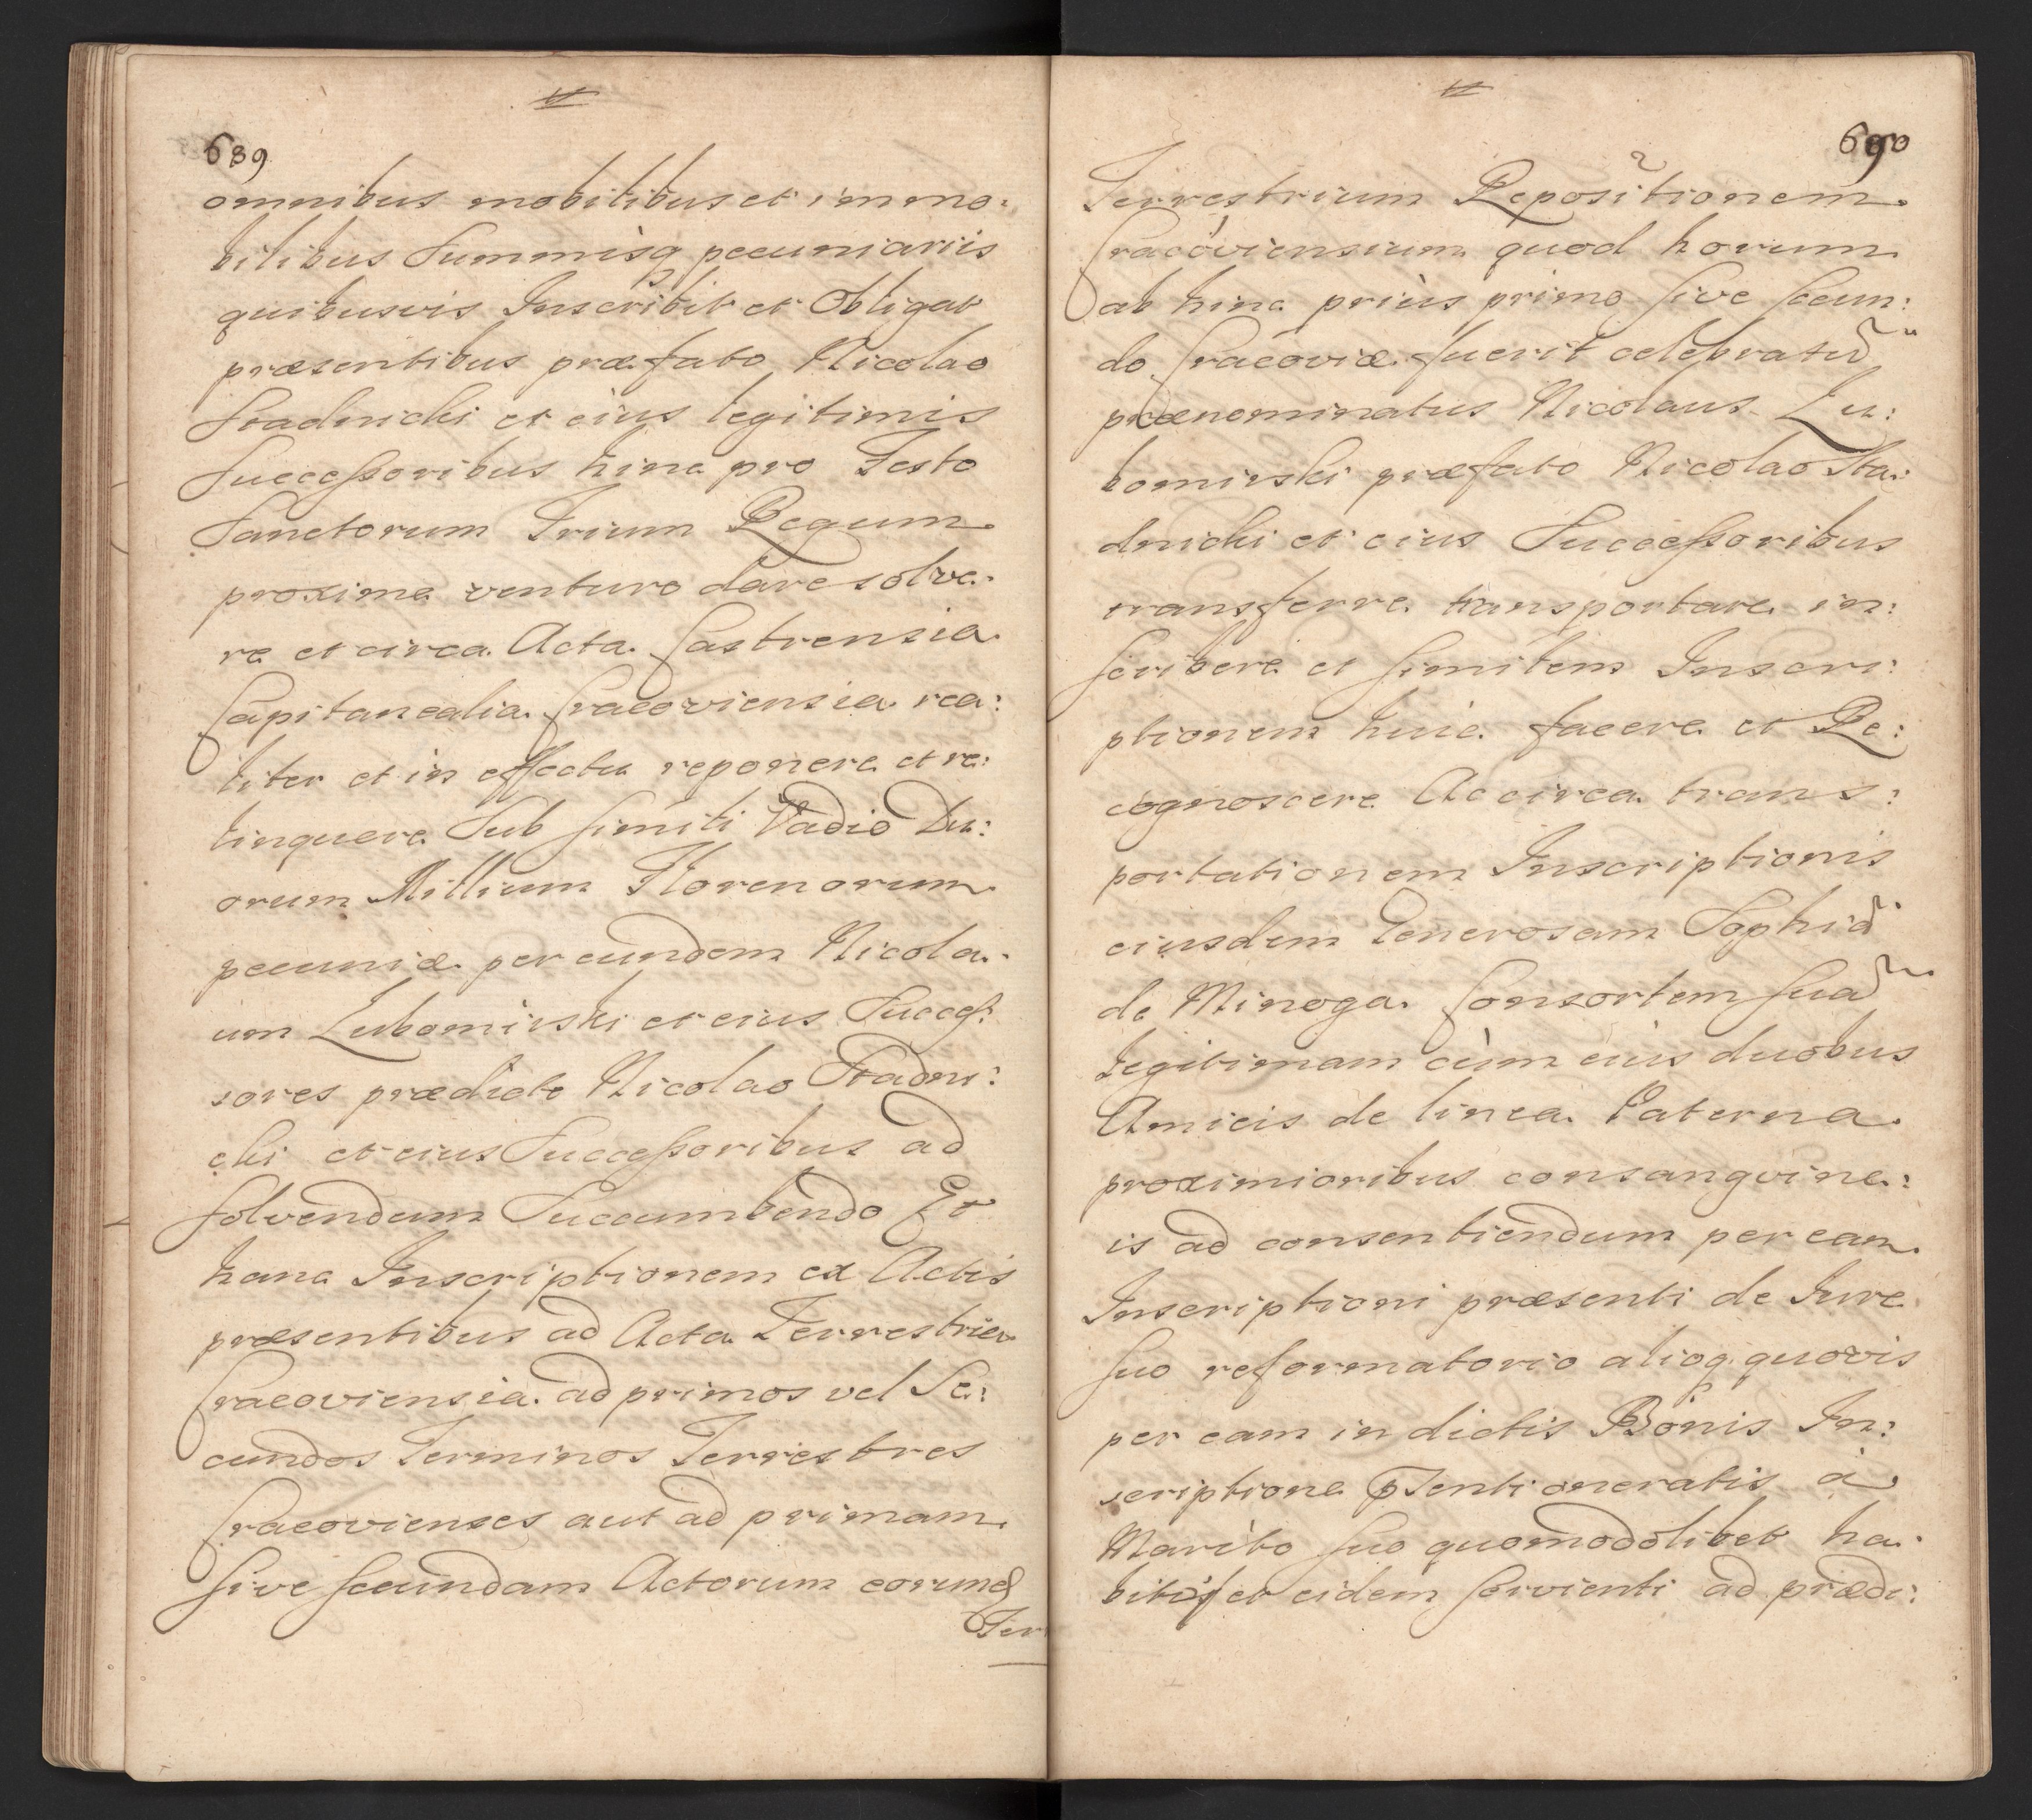 689
omnibus mobilibus et immo:
bilibus Summisq pecuniariis
quibusvis Inscribit et Obligat
præsentibus præfato Nicolao
Stadnicki et eius legitimis
Successoribus hinc pro Festo
Sanctorum Trium Regum
proxime venturo dare solve:
re et circa Acta Castrensia
Capitanealia Cracoviensia rea:
liter et in effectu reponere et re:
linquere Sub simili Vadio Du:
orum Millium Florenorum
pecuniæ per eundem Nicola:
um Lubomirski et eius Succes:
sores prædicto Nicolao Stadni:
cki et eius Successoribus ad
solvendum Succumbendo Et
hanc Inscriptionem ex Actis
præsentibus ad Acta Terrestria
Cracoviensia ad primos vel Se:
cundos Terminos Terrestres
Cracovienses aut ad primam
sive secundam Actorum eorund
Ter
690
Terrestrium Repositionem
Cracoviensium quod horum
ab hinc priùs primo sive secun:
do Cracoviæ fuerit celebratũ
prænominatus Nicolaus Lu:
bomirski præfato Nicolao Sta:
dnicki et eius Successoribus
transferre transportare in:
scribere et similem Inscri:
ptionem huic facere et Re:
cognoscere Ac circa trans:
portationem Inscriptionis
eiusdem Generosam Sophiã
de Minoga Consortem suã
legitimam cùm eius duobus
Amicis de linea Paterna
proximioribus consangvine:
is ad consentiendum per eam
Inscriptioni præsenti de Iure
suo reformatorio alioq quovis
per eam in dictis Bonis In:
scriptione pszenti oneratis à
Marito suo quomodolibet ha:
bito et eidem servienti ad prædi: